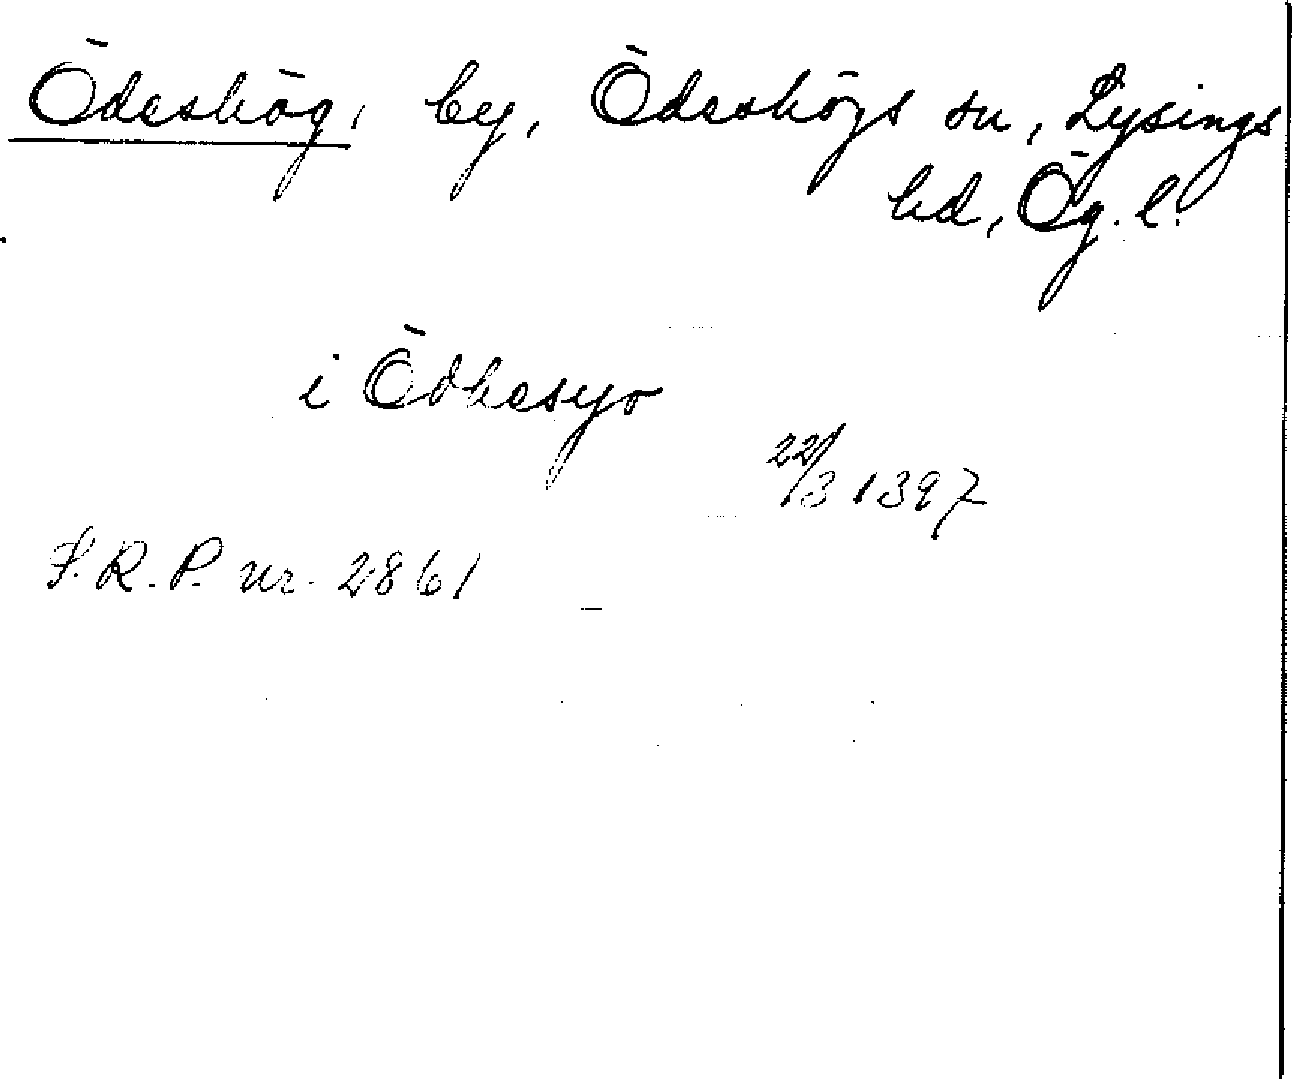 Ödeshög, by, Ödeshögs sn, Lysings
hd, Ög. l.
i Ödhesyo
22/3 1397
S.R.P. nr. 2861